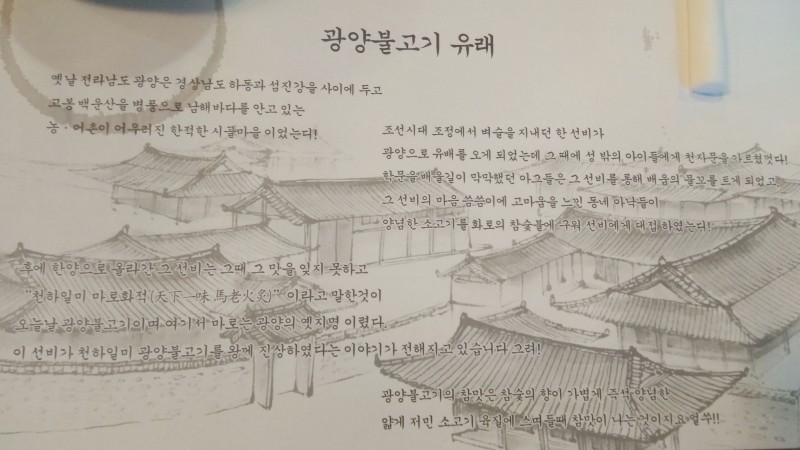 광양불고기 유래
옛날 전라남도 광양은 경상남도 하동과 섬진강을 사이에 두고
고봉 백운산을 병풍으로 남해바다를 안고 있는
농·어촌이 어우러진 한적한 시골마을 이었는디!
조선시대 조정에서 벼슬을 지내던 한 선비가
광양으로 유배를 오게 되었는데 그 때에 성 밖의 아이들에게 천자문을 가르쳤것다!
학문을 배울길이 막막했던 아그들은 그 선비를 통해 배움의 물꼬를 트게 되었고
그 선비의 마음 씀씀이에 고마움을 느낀 동네 아낙들이
양념한 소고기를 화로의 참숯불에 구워 선비에게 대접 하였는디!
후에 한양으로 올라간 그 선비는 그때 그 맛을 잊지 못하고
"천하일미 마로화적(天下一味 馬老火炙)" 이라고 말한것이
오늘날 광양불고기이며 여기서 마로는 광양의 옛지명 이렸다.
이 선비가 천하일미 광양불고기를 왕께 진상하였다는 이야기가 전해지고 있습니다 그려!
광양불고기의 참맛은 참숯의 향이 가볍게 즉석 양념한
얇게 저민 소고기 육질에 스며들때 참맛이 나는 것이지요 얼쑤!!